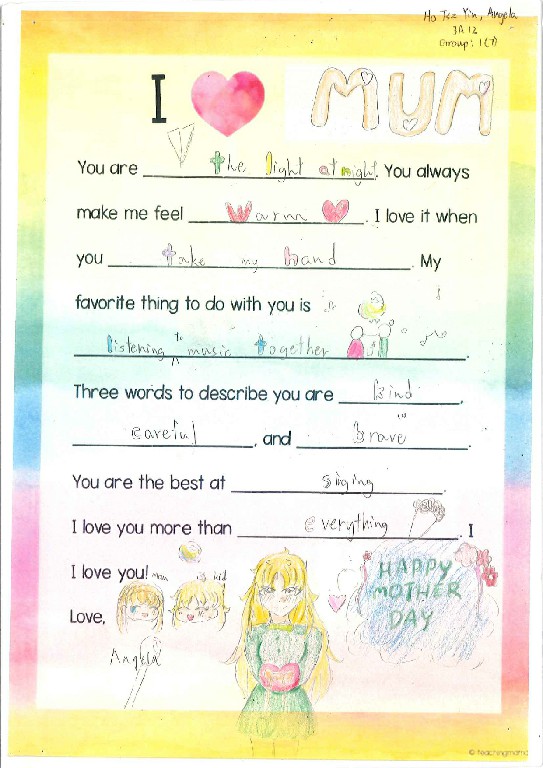 Ho Tsz Yin, Angela
3A 12
Group: 1(7)
I MUM
You are the light at night. You always
make me feel warm. I love it when
you take my hand. My
favorite thing to do with you is
listening to music together.
Three words to describe you are kind,
careful, and brave.
You are the best at siging.
I love you more than everything. I
I love you!
Love,
Angela
HAPPY
MOTHER
DAY